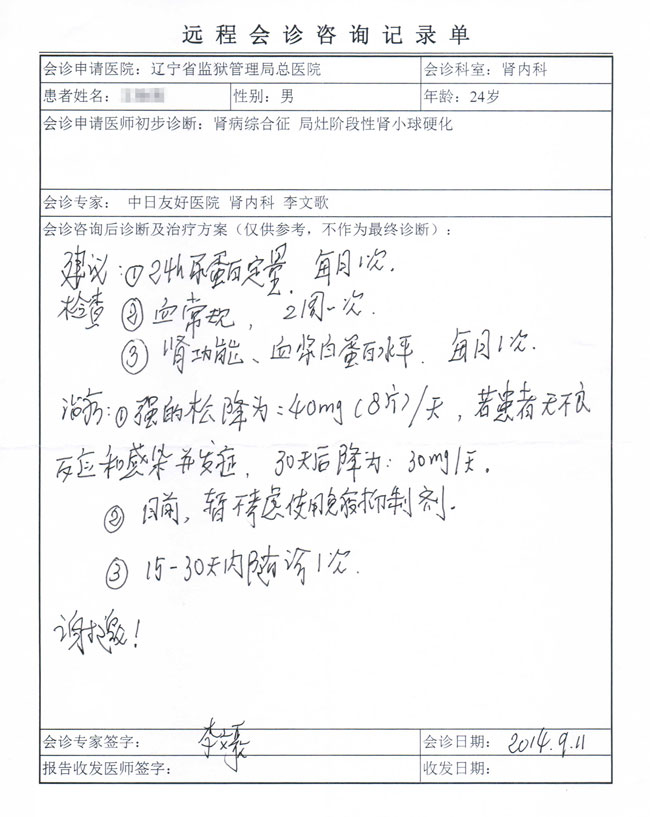 远程会诊咨询记录单
会诊申请医院：辽宁省监狱管理局总医院 会诊科室：肾内科
患者姓名： 性别：男 年龄：24岁
会诊申请医师初步诊断：肾病综合征 局灶阶段性肾小球硬化
会诊专家： 中日友好医院 肾内科 李文歌
会诊咨询后诊断及治疗方案（仅供参考，不作为最终诊断）：
建议：① 24h尿蛋白定量，每月1次．
检查 ② 血常规， 2周一次．
③ 肾功能、血浆白蛋白水平． 每月1次．
治疗：① 强的松降为：40mg（8片）/天，若患者无不良
反应和感染并发症， 30天后降为：30mg/天．
② 目前，暂不考虑使用免疫抑制剂．
③ 15-30天内随诊1次．
谢邀！
会诊专家签字： 李文歌 会诊日期： 2014.9.11
报告收发医师签字： 收发日期：